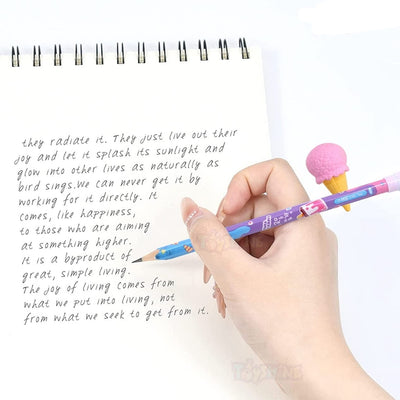 they radiate it. They just live out their
joy and let it splash its sunlight and
glow into other lives as naturally as
bird sings.We can never get it by
working for it directly. It
comes, like happiness,
to those who are aiming
at something higher.
It is a byproduct of
great, simple living.
The joy of living comes from
what we put into living, not
from what we seek to get from it.